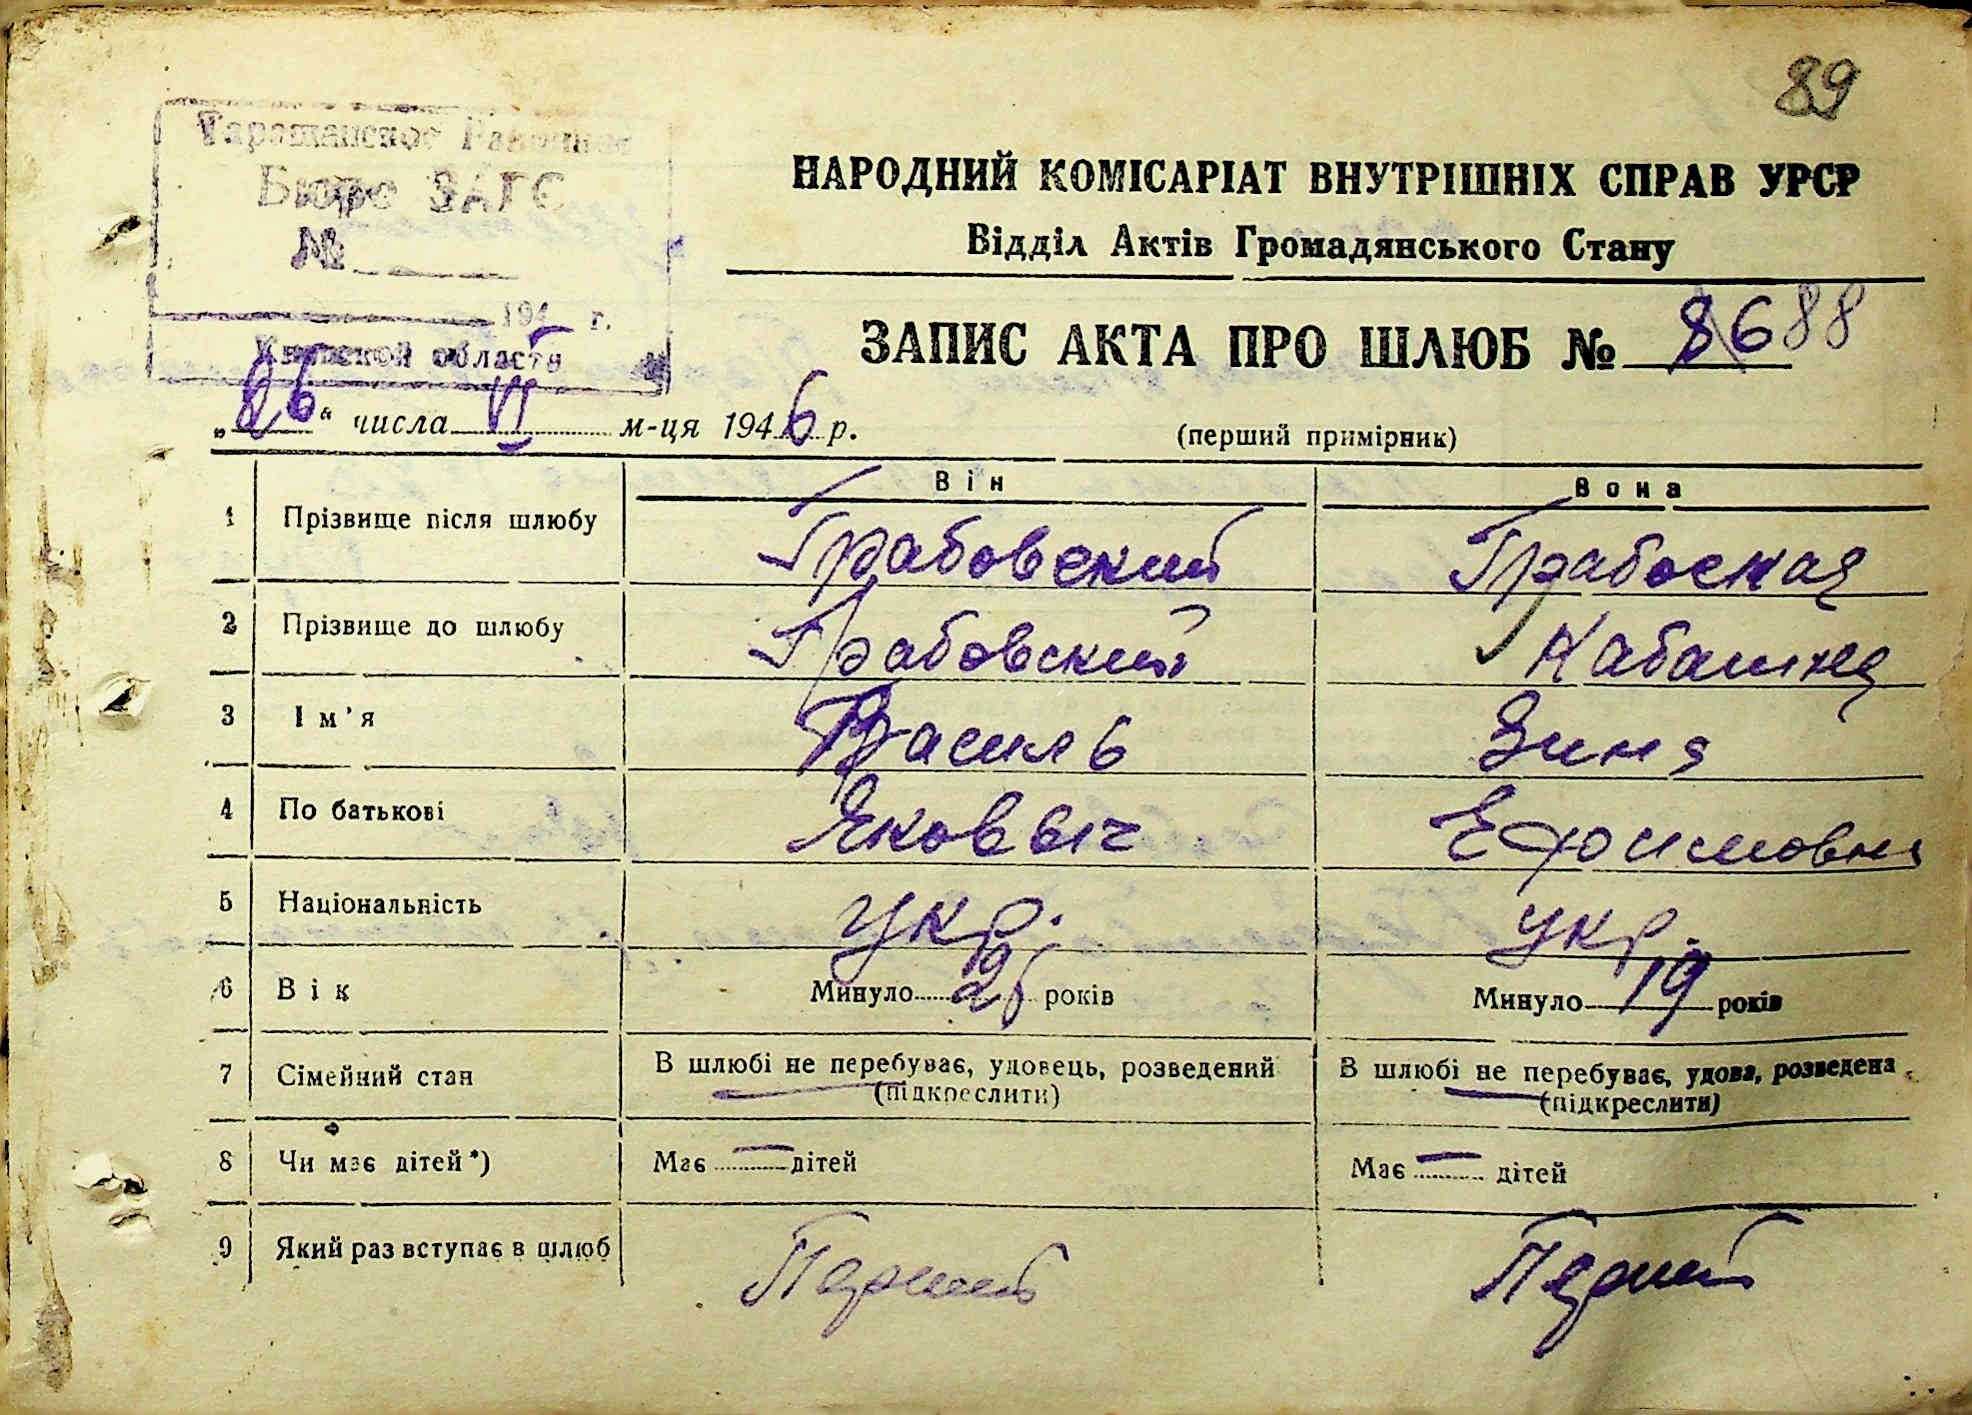 89
Таращанское Районное
Бюро ЗАГС
№
194 г.
Киевской области
НАРОДНИЙ КОМІСАРІАТ ВНУТРІШНІХ СПРАВ УРСР
Відділ Актів Громадянського Стану
ЗАПИС АКТА ПРО ШЛЮБ № 86 88
„26“ числа VI м-ця 1946 р.
(перший примірник)
Він Вона
1 Прізвище після шлюбу Грабовский Грабоская
2 Прізвище до шлюбу Грабовский Кабашня
3 Ім'я Василь Зиня
4 По батькові Яковвич Ефоимовна
5 Національність укр. укр.
6 Вік Минуло років Минуло 19 років
7 Сімейний стан В шлюбі не перебуває, удовець, розведений В шлюбі не перебуває, удова, розведена
(підкреслити) (підкреслити)
8 Чи має дітей*) Має — дітей Має — дітей
9 Який раз вступає в шлюб Перший Перший